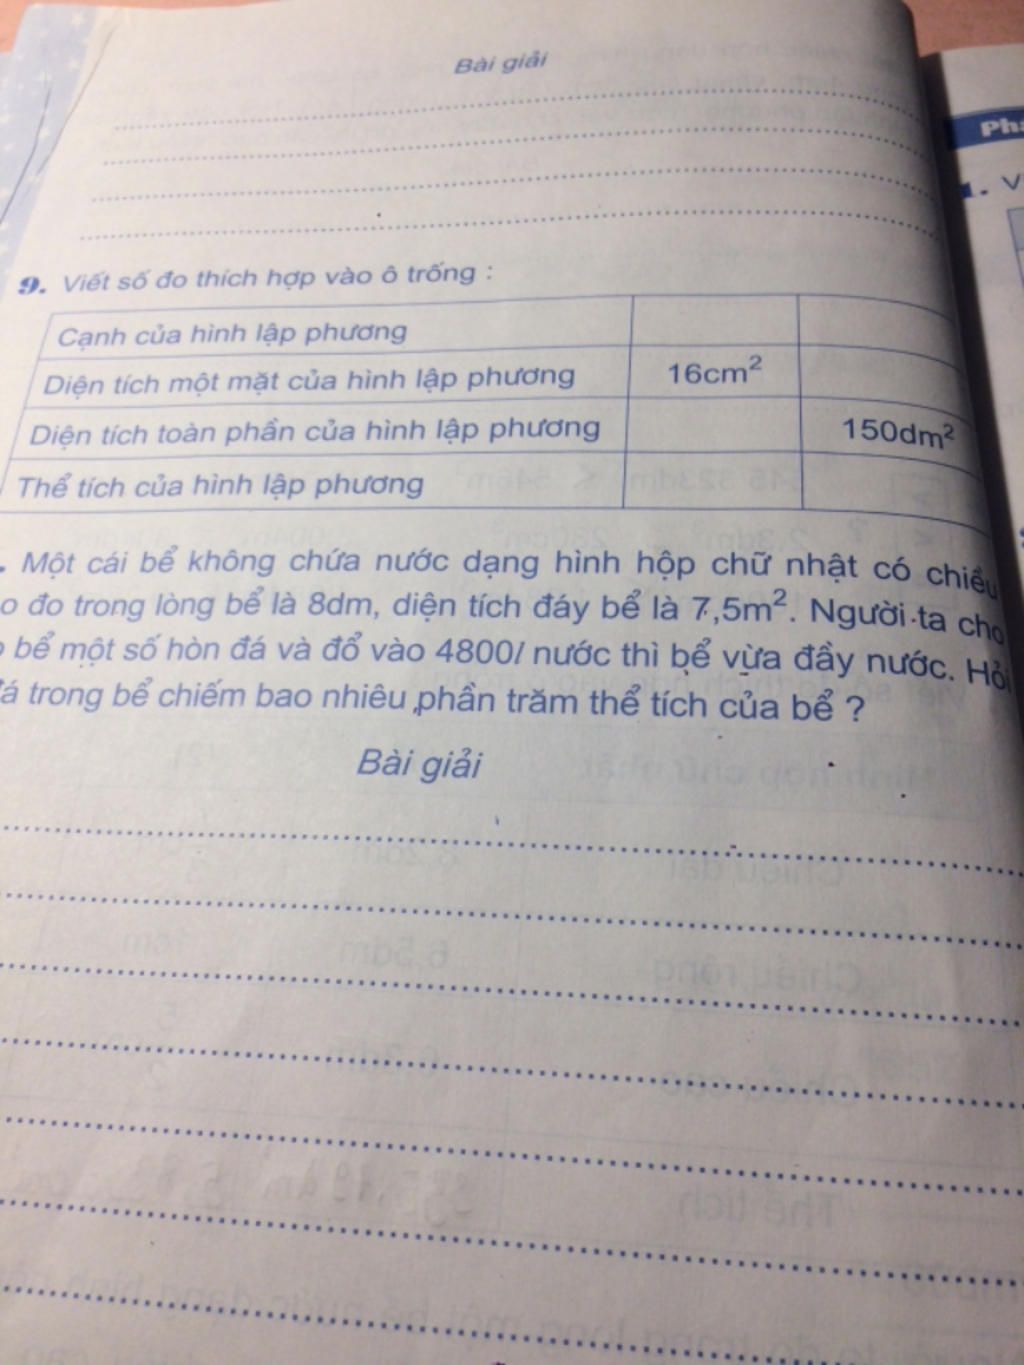 Bài giải
9. Viết số đo thích hợp vào ô trống :
Cạnh của hình lập phương
Diện tích một mặt của hình lập phương 16cm²
Diện tích toàn phần của hình lập phương 150dm²
Thể tích của hình lập phương
. Một cái bể không chứa nước dạng hình hộp chữ nhật có chiều
o đo trong lòng bể là 8dm, diện tích đáy bể là 7,5m². Người ta cho
bể một số hòn đá và đổ vào 4800l nước thì bể vừa đầy nước. Hỏi
trong bể chiếm bao nhiêu phần trăm thể tích của bể ?
Bài giải
1.